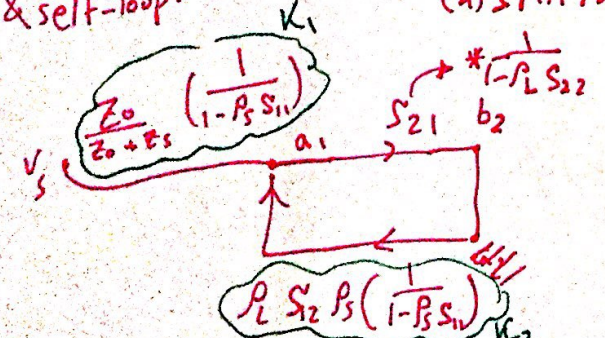 & self-loop.
K₁
Z₀/(Z₀ + Zₛ) (1/(1-ρₛ S₁₁))
* 1/(1-ρ_L S₂₂)
Vₛ
a₁
S₂₁ b₂
ρ_L S₁₂ ρₛ (1/(1-ρₛ S₁₁))